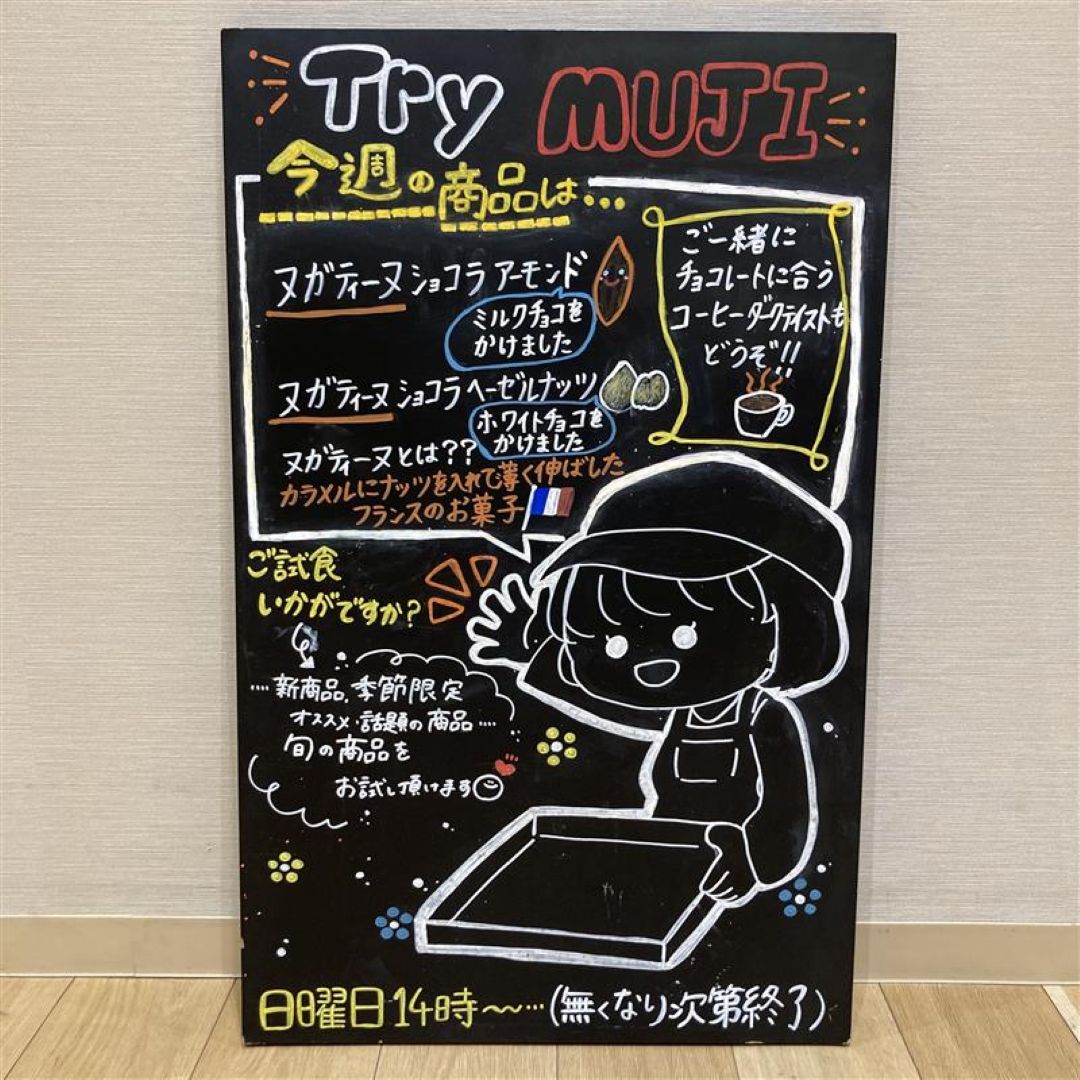 Try MUJI
今週の商品は...
ヌガティーヌショコラアーモンド
ミルクチョコを
かけました
ヌガティーヌショコラヘーゼルナッツ
ホワイトチョコを
かけました
ヌガティーヌとは??
カラメルにナッツを入れて薄く伸ばした
フランスのお菓子
ご一緒に
チョコレートに合う
コーヒーダークテイストも
どうぞ!!
ご試食
いかがですか?
....新商品.季節限定
オススメ・話題の商品....
旬の商品を
お試し頂けます
日曜日14時〜...(無くなり次第終了)